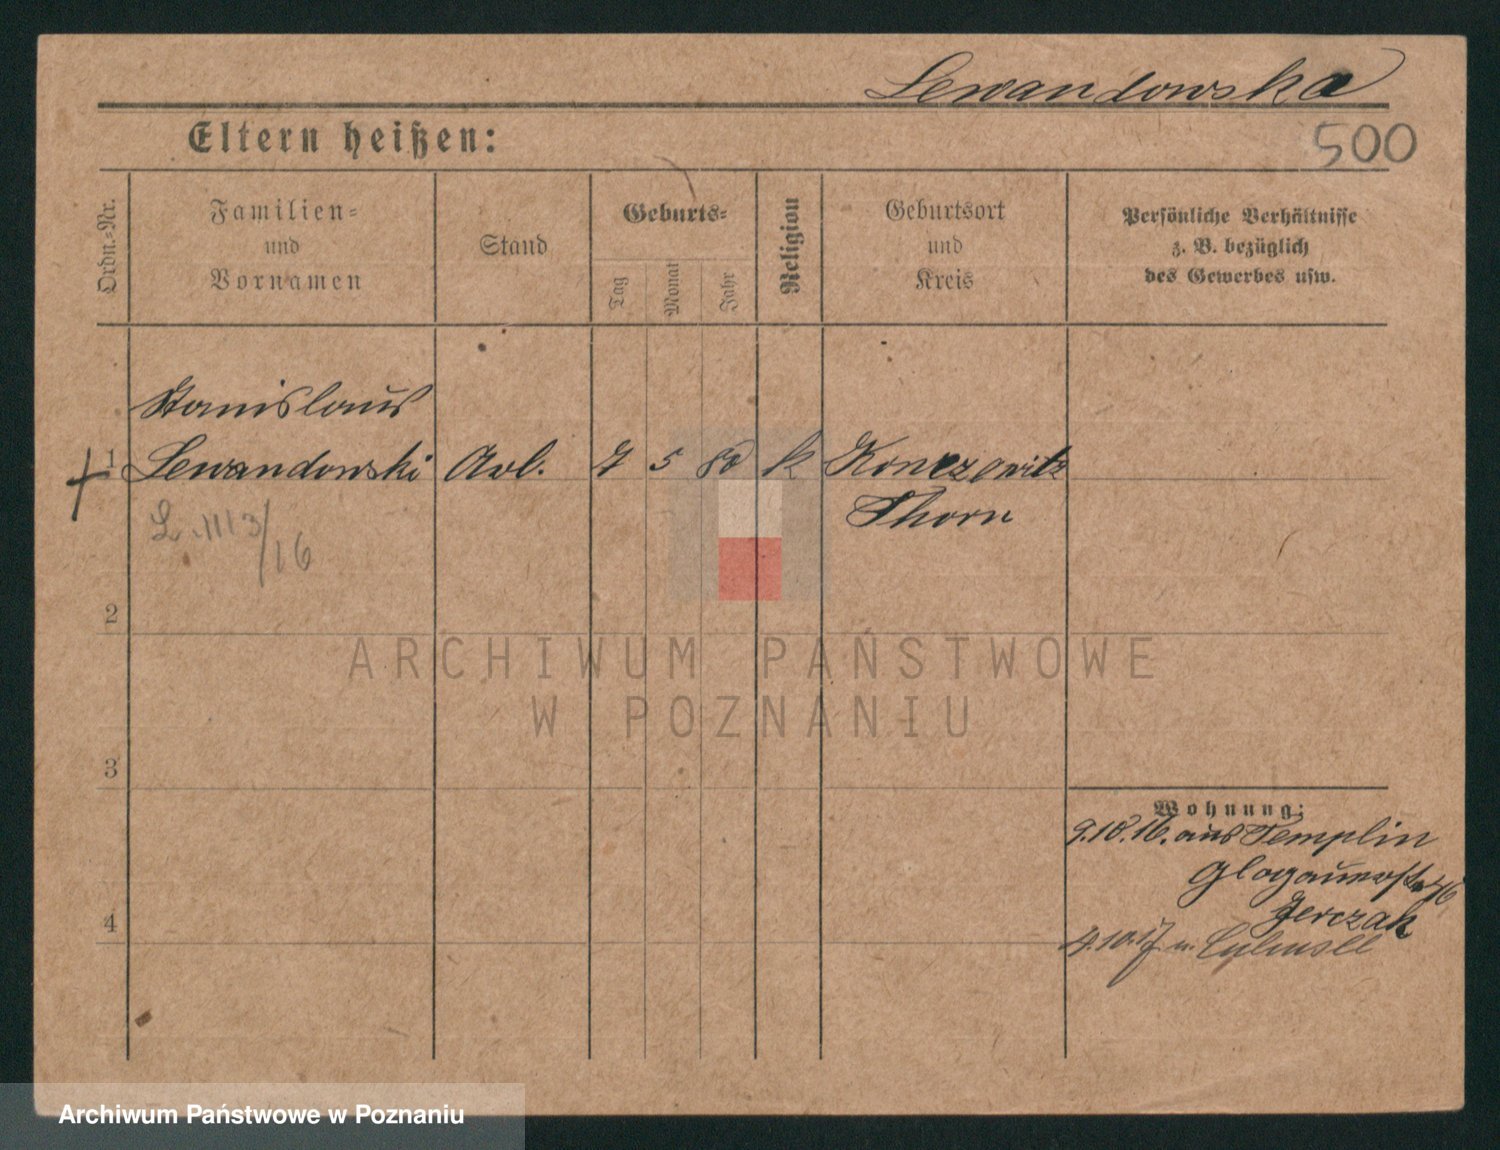 Lewandowska
Eltern heißen:
500
Ordn.-Nr.
Familien-
und
Vornamen
Stand
Geburts-
Tag
Monat
Jahr
Religion
Geburtsort
und
Kreis
Persönliche Verhältnisse
z. B. bezüglich
des Gewerbes usw.
Stanislaus
1 Lewandowski Arb. 5 80 k
Thorn
2
3
4
Wohnung:
9.10.16. aus Templin
Glogauerstr
Jerczak
4.10.17
ARCHIWUM PAŃSTWOWE
W POZNANIU
Archiwum Państwowe w Poznaniu